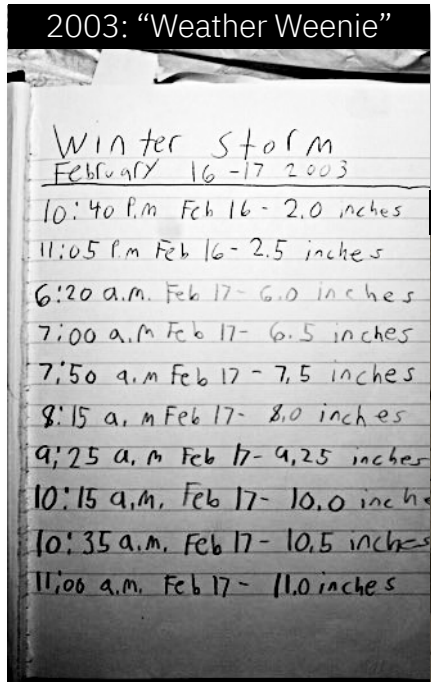 2003: “Weather Weenie”
Winter Storm
February 16-17 2003
10:40 P.m Feb 16 - 2.0 inches
11:05 P.m Feb 16 - 2.5 inches
6:20 a.m. Feb 17 - 6.0 inches
7:00 a.m Feb 17 - 6.5 inches
7:50 a.m Feb 17 - 7.5 inches
8:15 a.m Feb 17 - 8.0 inches
9:25 a.m Feb 17 - 9.25 inches
10:15 a.m. Feb 17 - 10.0 inche
10:35 a.m. Feb 17 - 10.5 inches
11:00 a.m. Feb 17 - 11.0 inches